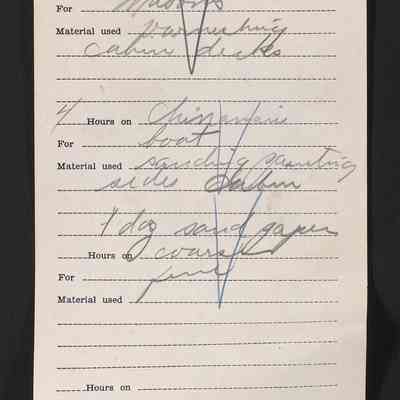 For
Material used varnishing
cabin decks
4 Hours on Chinaman's
For boat
Material used sanding painting
sides Cabin
1 doz sand paper
Hours on coarse
For fine
Material used
Hours on